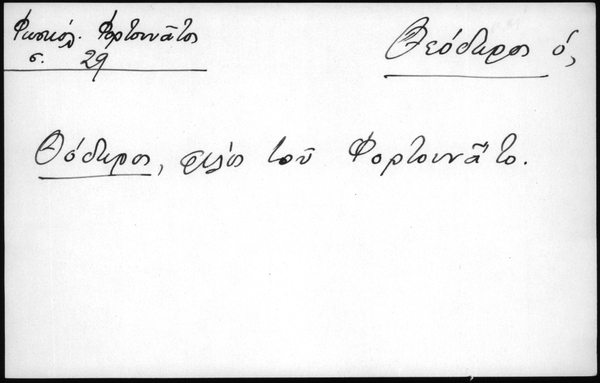 Φωσκόλ. Φορτουνᾶτος
σ. 29
Θεόδωρος ὁ,
Θόδωρος, φίλος τοῦ Φορτουνᾶτο.